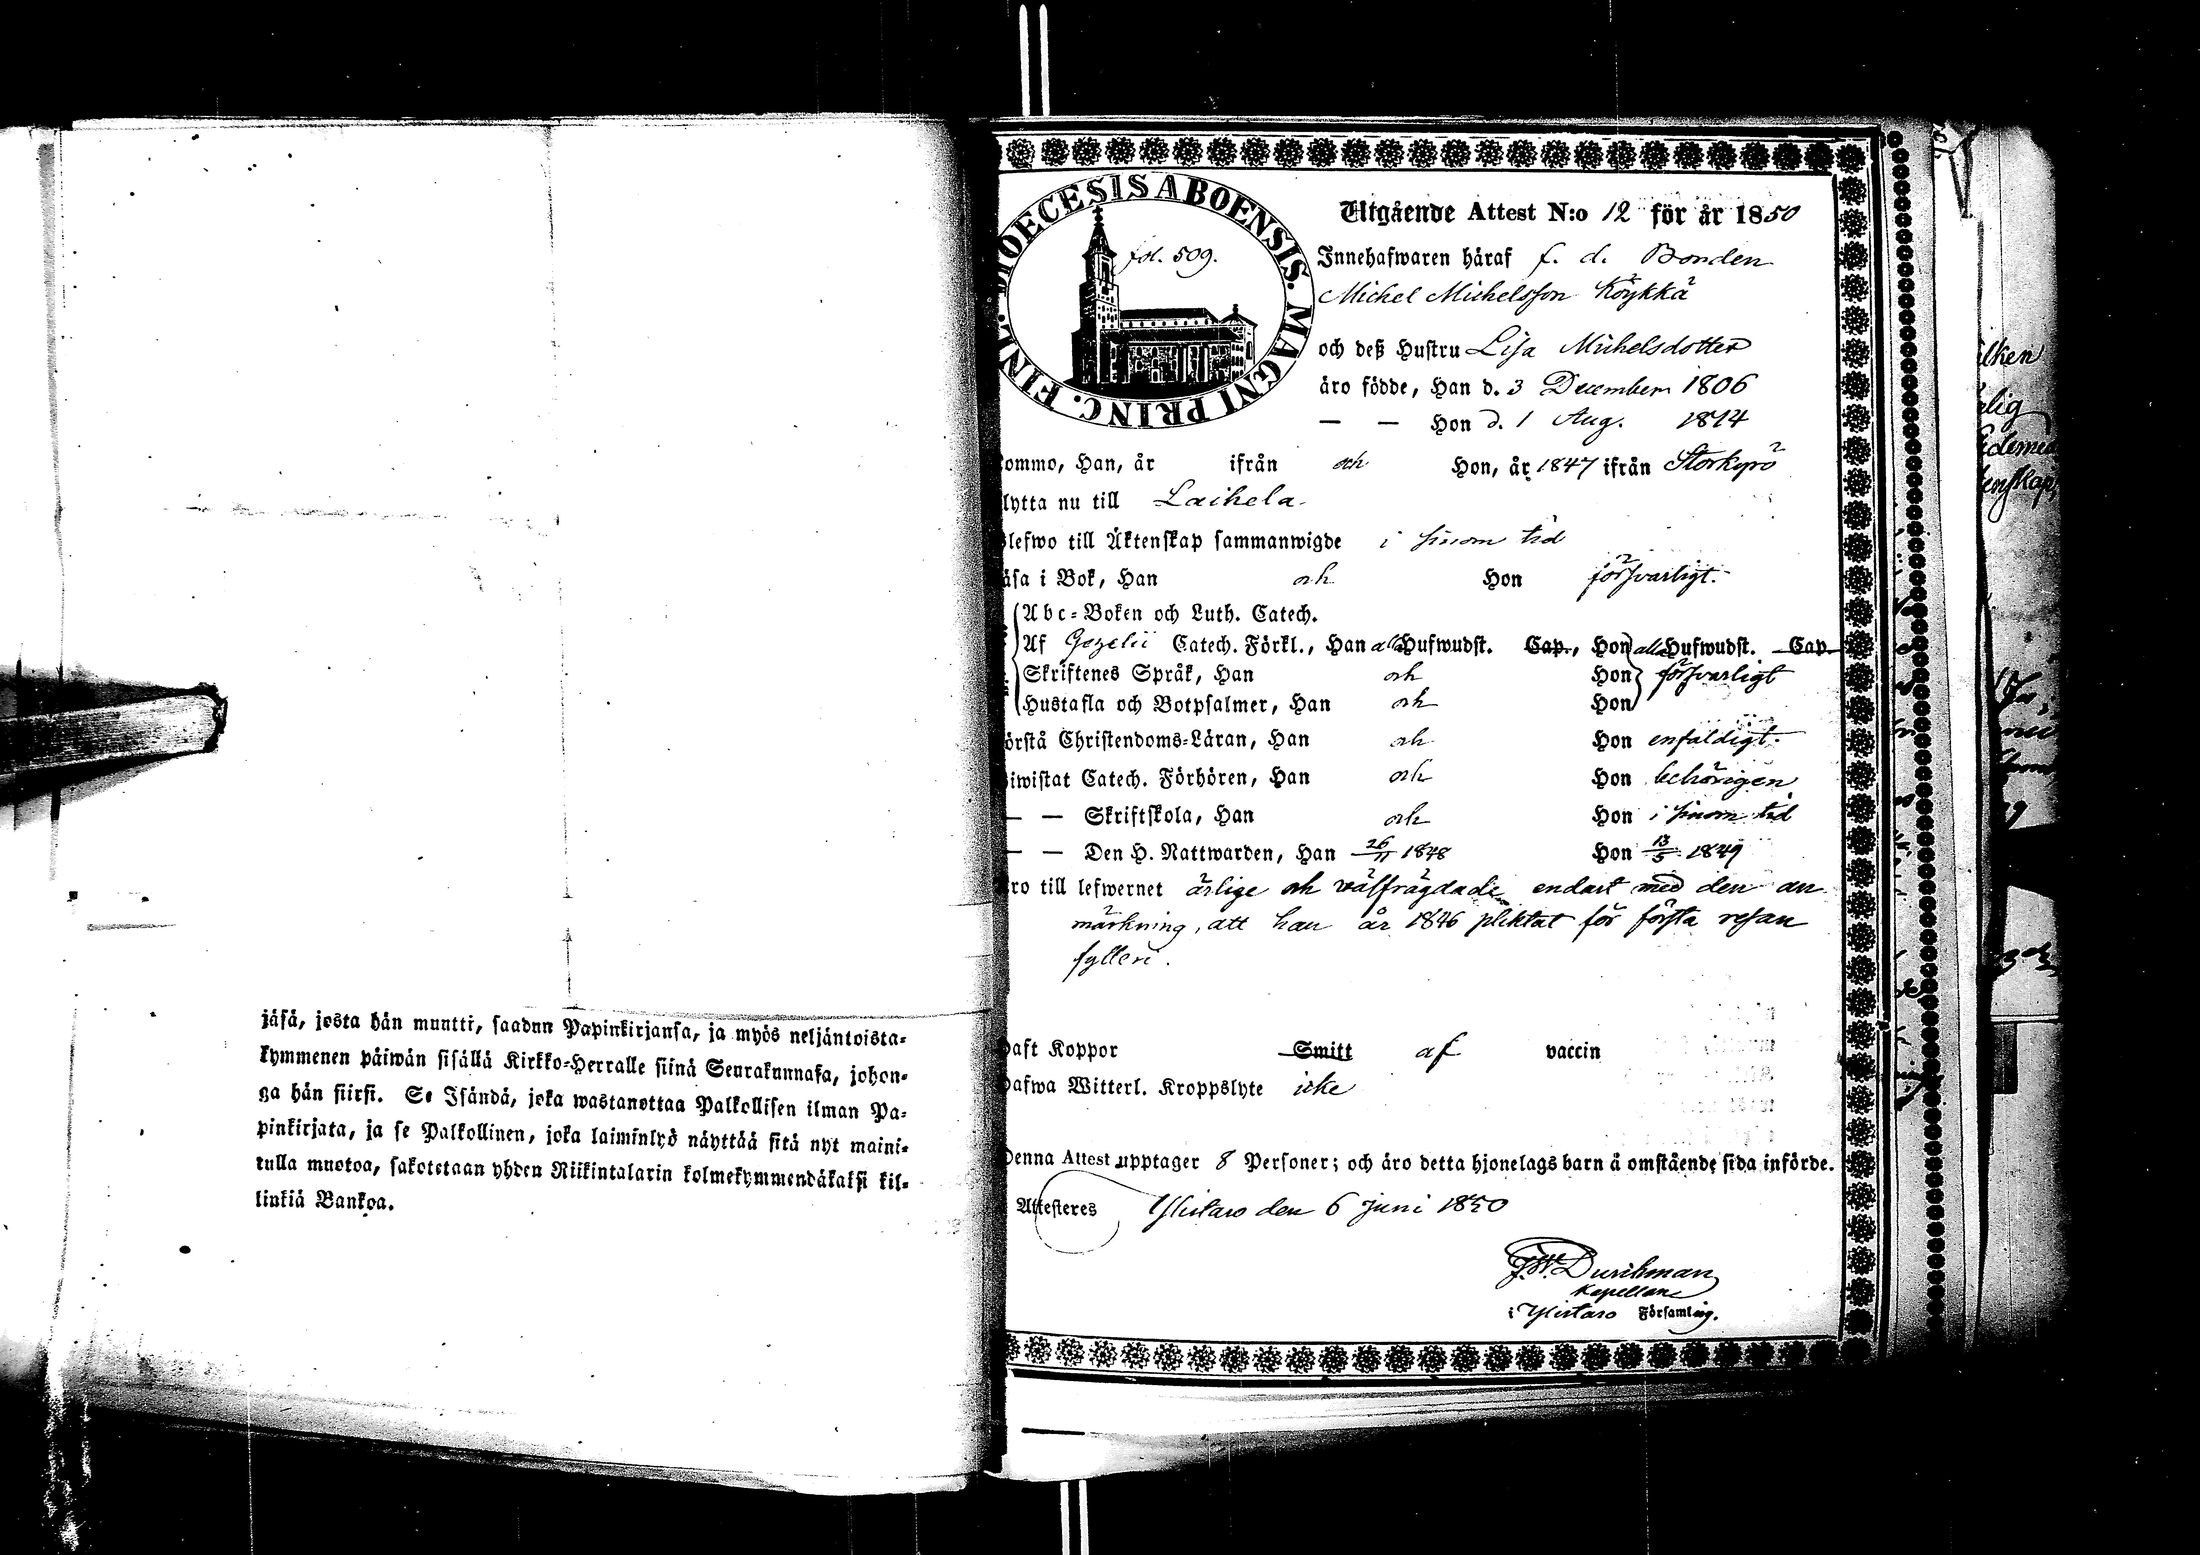 jäsä, josta hän muutti, saadun Papinkirjansa, ja myös neljäntoista-
kymmenen päiwän sisällä Kirkko-Herralle siinä Seurakunnasa, johon-
ga hän siirsi. Se Isändä, joka wastanottaa Palkollisen ilman Pa-
pinkirjata, ja se Palkollinen, joka laiminlyö näyttää sitä nyt maini-
tulla muotoa, sakotetaan yhden Riikintalarin kolmekymmendäkaksi kil-
linkiä Bankoa.
DIOECESIS ABOENSIS. MAGNI PRINC. FINL.
fol. 509.
Utgående Attest N:o 12 för år 1850
Innehafwaren häraf f. d. Bonden
Michel Michelsson Köykkä
och deß Hustru Lisa Michelsdotter
äro födde, Han d. 3 December 1806
— — Hon d. 1 Aug. 1814
kommo, Han, år ifrån och Hon, år 1847 ifrån Storkyrö
flytta nu till Laihela.
blefwo till Äktenskap sammanwigde i sinom tid
läsa i Bok, Han och Hon försvarligt.
Abc-Boken och Luth. Catech.
Af Gezelii Catech. Förkl., Han alla Hufwudst. Cap., Hon alla Hufwudst. Cap.
Skriftenes Språk, Han och Hon försvarligt
Hustafla och Botpsalmer, Han och Hon
förstå Christendoms-Läran, Han och Hon enfaldigt.
biwistat Catech. Förhören, Han och Hon behörigen
— — Skriftskola, Han och Hon i sinom tid
— — Den H. Nattwarden, Han 26/11 1848 Hon 13/5 1849
äro till lefwernet ärlige och välfrägdade endast med den an
märkning, att han år 1846 pliktat för första resan
fylleri.
haft Koppor Smitt af vaccin
hafwa Witterl. Kroppslyte icke
Denna Attest upptager 8 Personer; och äro detta hjonelags barn å omstående sida införde.
Attesteres Ylistaro den 6 Juni 1850
Durchman
Kapellan
i Ylistaro Församling.